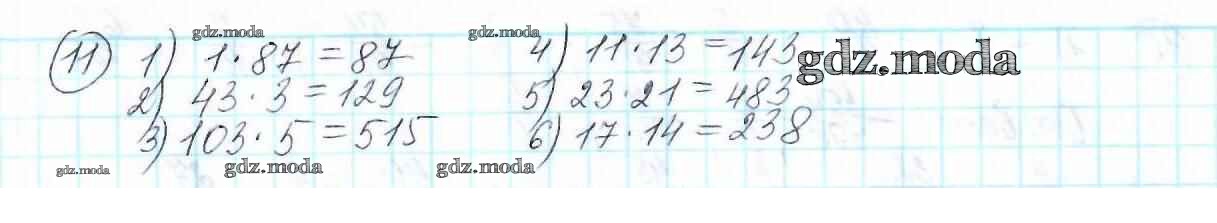 gdz.moda gdz.moda
11 1) 1·87=87 4) 11·13=143 gdz.moda
2) 43·3=129 5) 23·21=483
3) 103·5=515 6) 17·14=238
gdz.moda gdz.moda gdz.moda